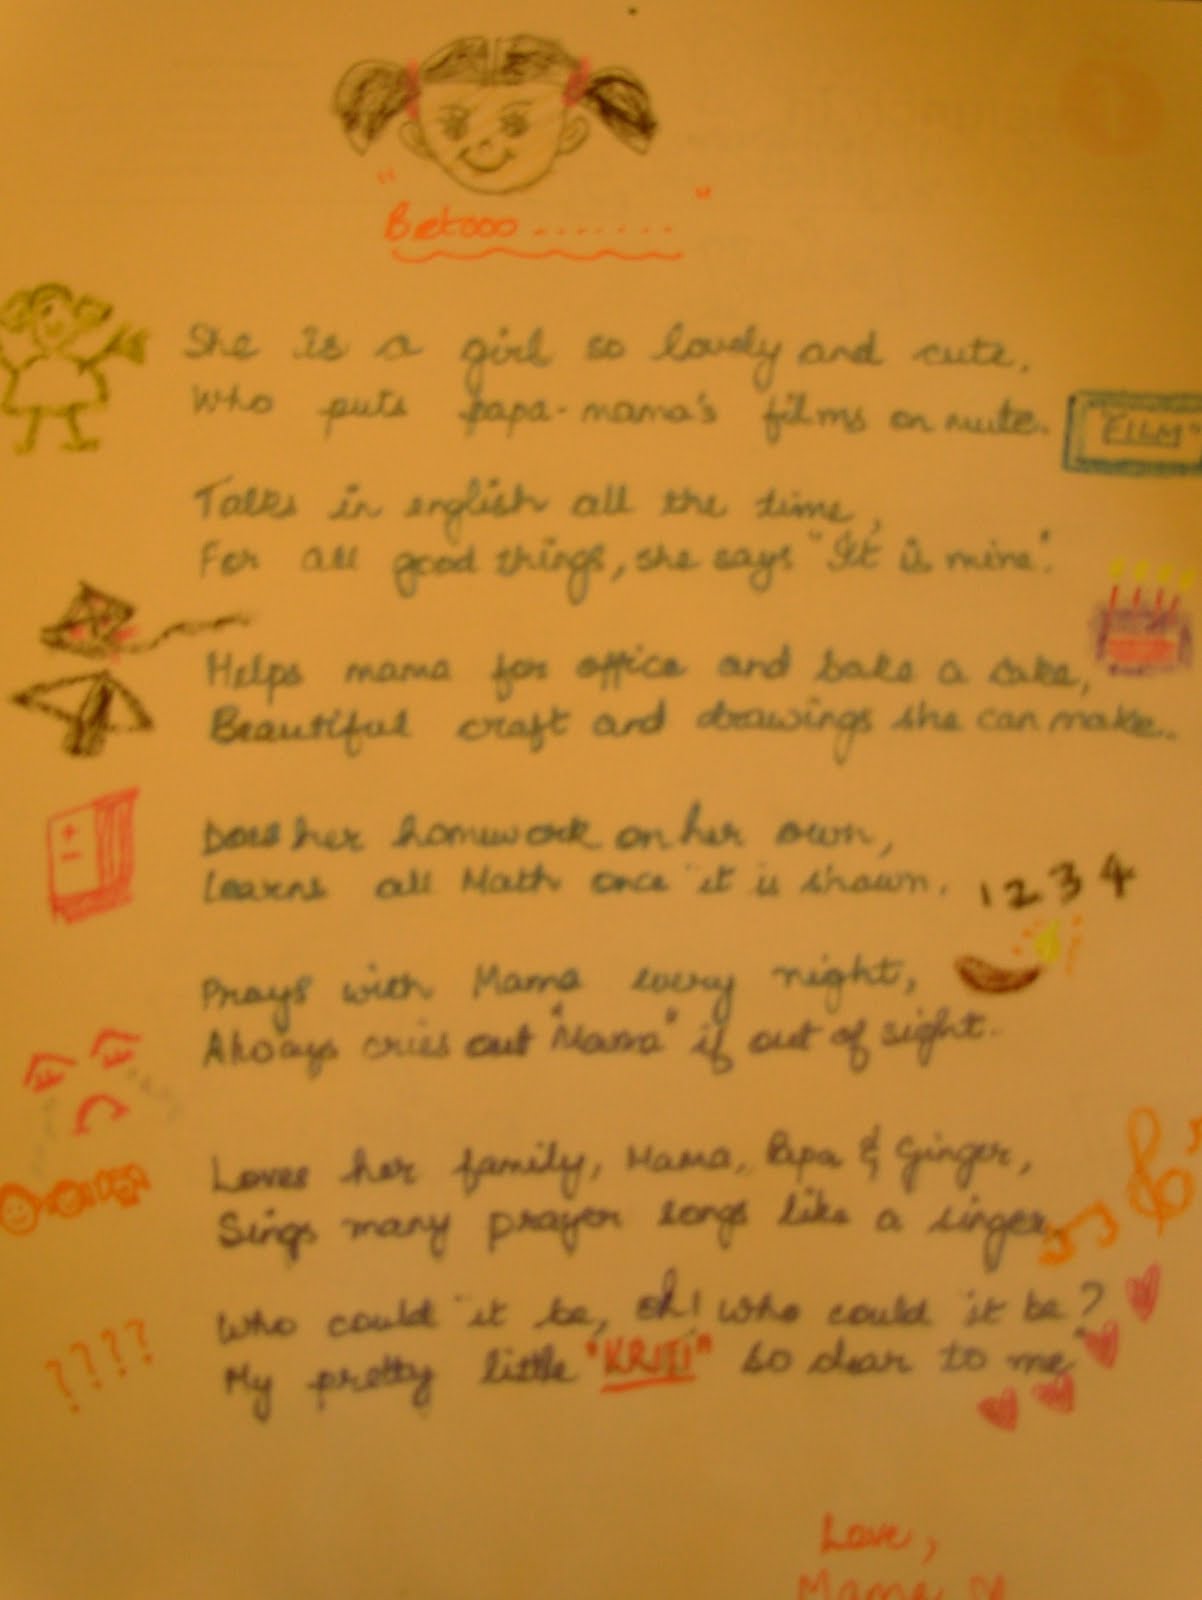 "Betooo ......."
She is a girl so lovely and cute,
Who puts papa-mama's films on mute.
"FILM"
Talks in english all the time,
For all good things, she says "It is mine".
Helps mama for office and bake a cake,
Beautiful craft and drawings she can make..
+
−
Does her homework on her own,
Learns all Math once it is shown.
1 2 3 4
Prays with Mama every night,
Always cries out "Mama" if out of sight..
Loves her family, Mama, Papa & Ginger,
Sings many prayer songs like a singer.
????
Who could it be, oh! who could it be?
My pretty little "KRITI" so dear to me
Love,
Mama